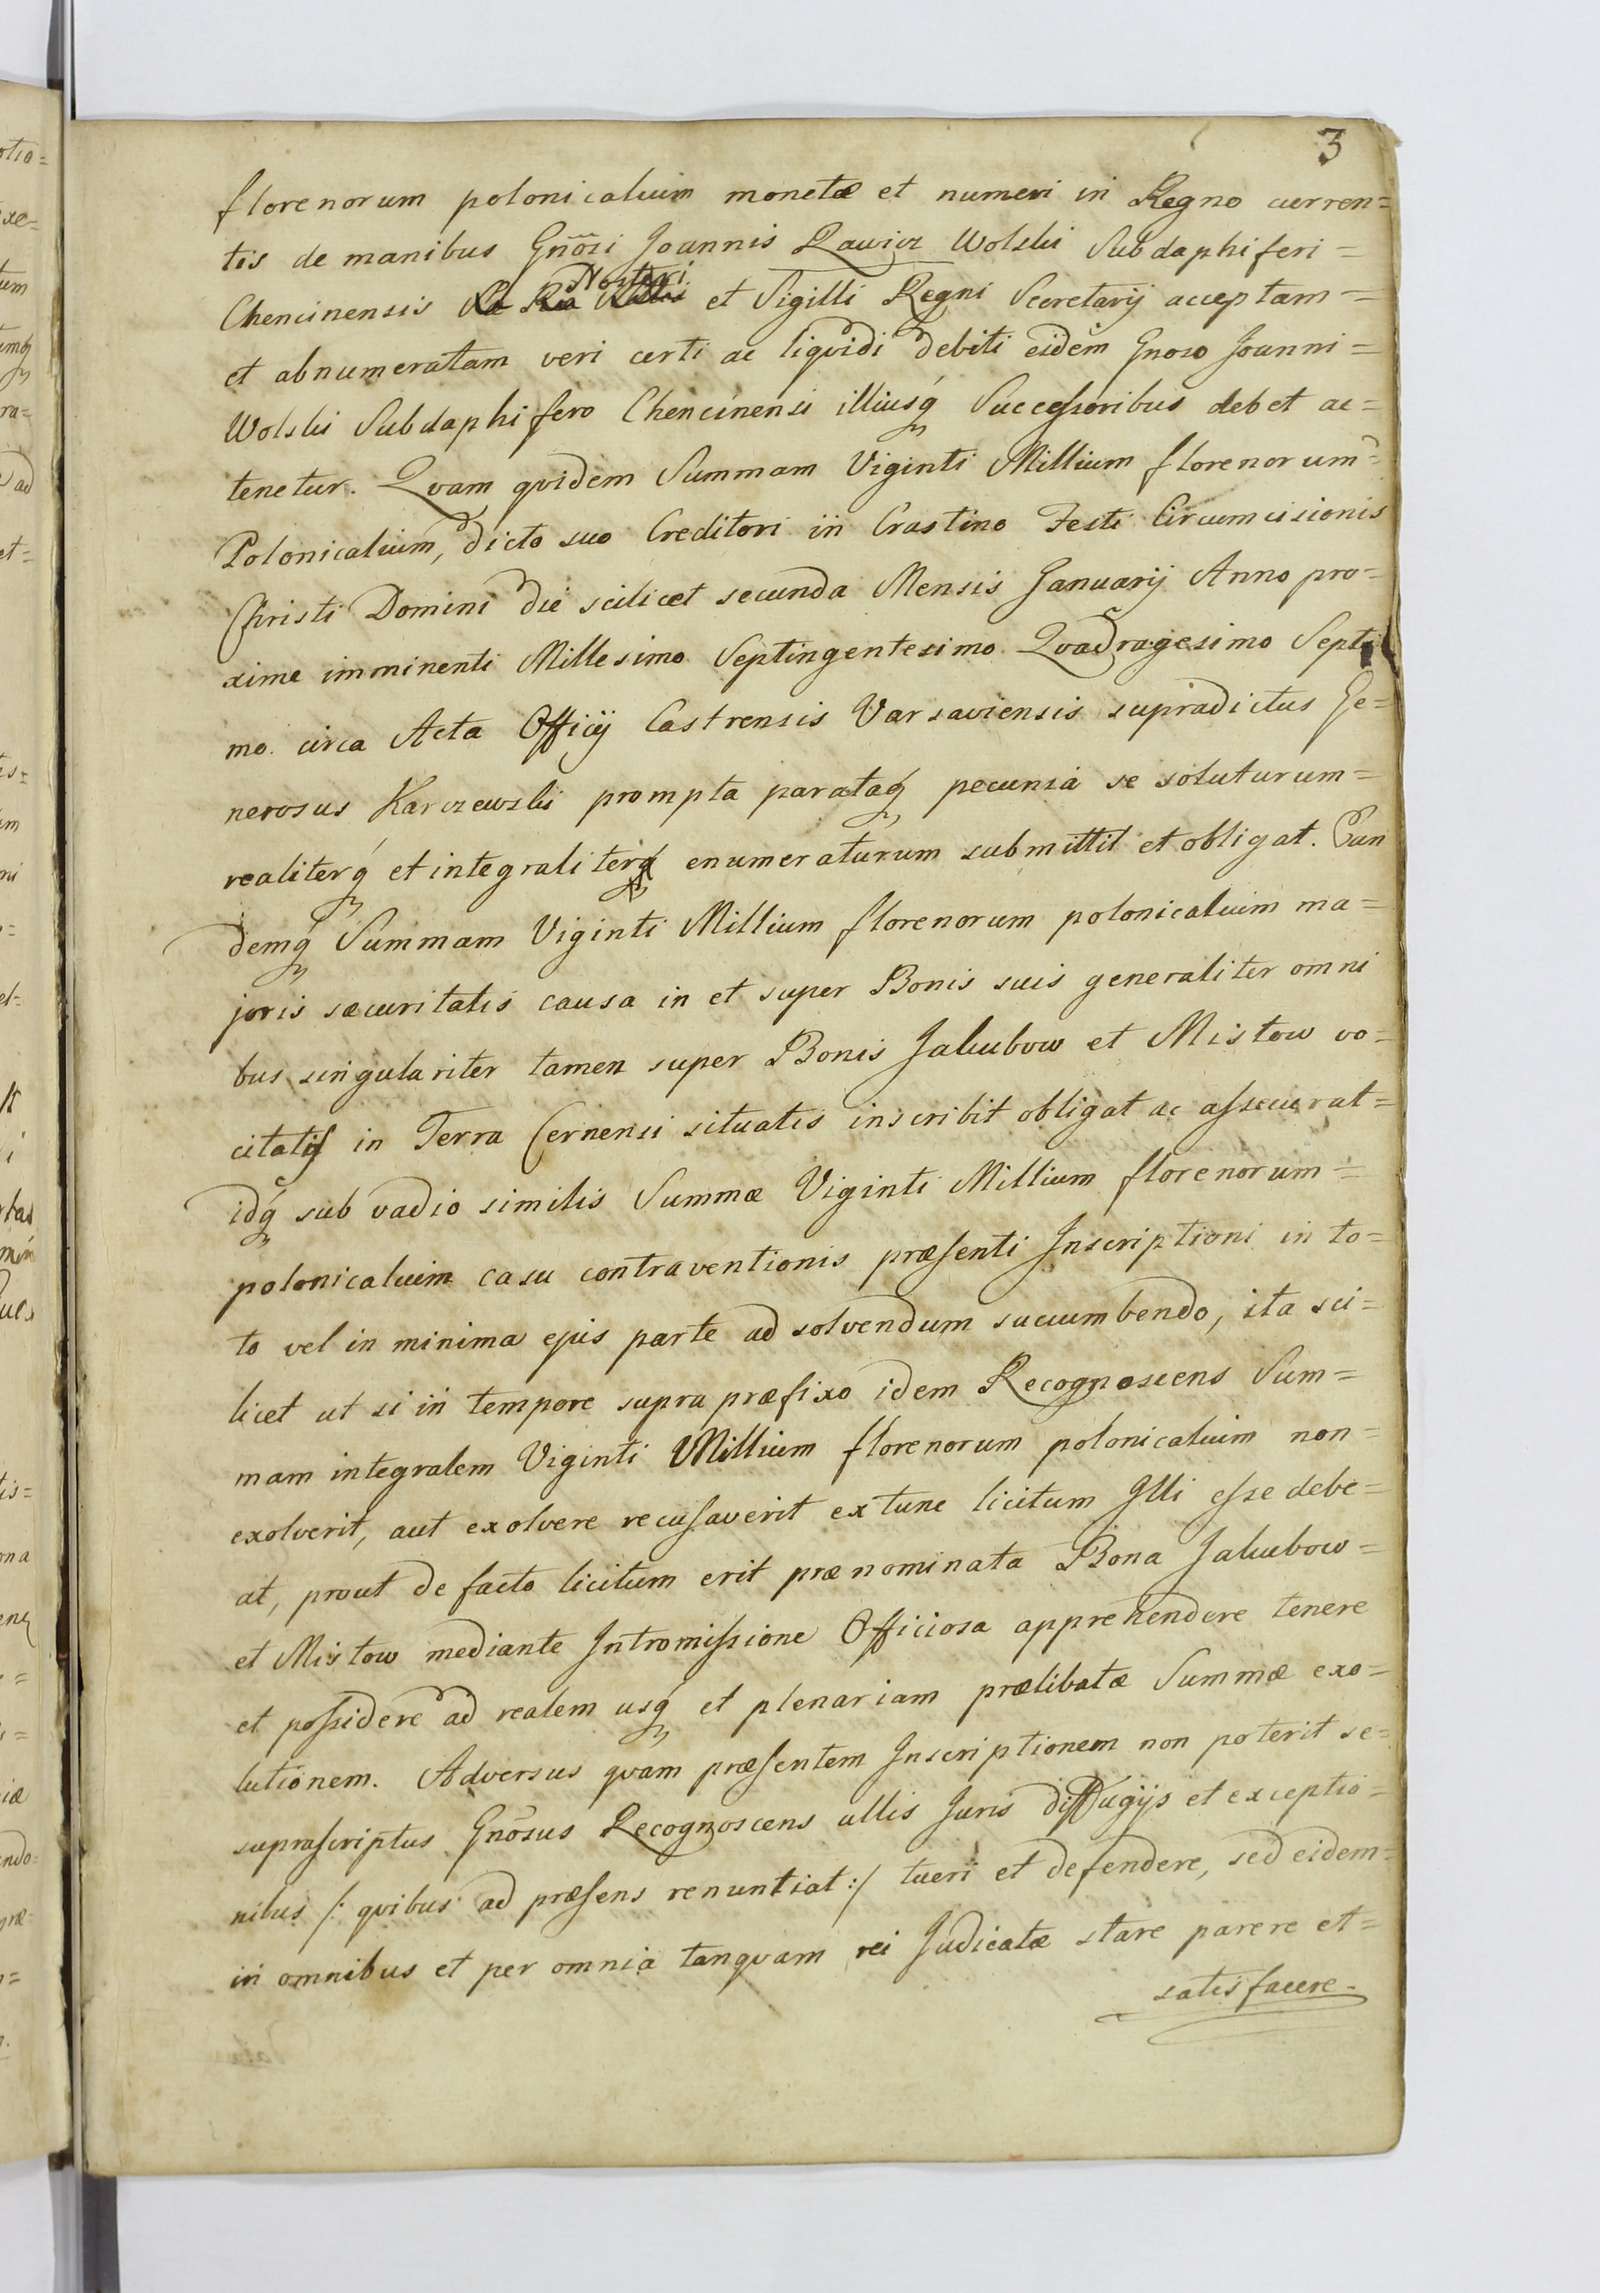 3
florenorum polonicalium monetæ et numeri in Regno curren=
tis de manibus Gnõsi Joannis Rawicz Wolski Subdaphiferi=
Nostri
Chencinensis et Sigilli Regni Secretarij acceptam=
et abnumeratam veri certi ac liqvidi debiti eidem Gnoso Joanni=
Wolski Subdaphifero Chencinensi illiusq́ Succeſsoribus debet ac=
tenetur. Qvam qvidem Summam Viginti Millium florenorum=
Polonicalium, dicto suo Creditori in Crastino Festi Circumcisionis
Christi Domini die scilicet secunda Mensis Januarij Anno pro=
xime imminenti Millesimo Septingentesimo Qvadragesimo Septi
mo circa Acta Officij Castrensis Varsaviensis supradictus Ge=
nerosus Karczewski prompta parataq́ pecunia se soluturum=
realiterq́ et integraliterq́ enumeraturum submittit et obligat. Ean
demq́ Summam Viginti Millium florenorum polonicalium ma=
joris sæcuritatis causa in et super Bonis suis generaliter omni
bus singulariter tamen super Bonis Jakubow et Mistow vo=
citatis in Terra Cernensi situatis inscribit obligat ac aſsecurat=
idq́ sub vadio similis Summæ Viginti Millium florenorum=
polonicalium casu contraventionis præſenti Inscriptioni in to=
to vel in minima ejus parte ad solvendum succumbendo, ita sci=
licet ut si in tempore supra præfixo idem Recognoscens Sum=
mam integralem Viginti Millium florenorum polonicalium non=
exolverit, aut exolvere recuſaverit extunc licitum Illi eſse debe=
at, prout de facto licitum erit prænominata Bona Jakubow=
et Mistow mediante Intromiſsione Officiosa apprehendere tenere
et poſsidere ad realem usq́ et plenariam prælibatæ Summæ exo=
lutionem. Adversus qvam præſentem Inscriptionem non poterit se=
supraſcriptus Gnõsus Recognoscens ullis Juris diffugijs et exceptio=
nibus /: qvibus ad præſens renuntiat :/ tueri et defendere, sed eidem=
in omnibus et per omnia tanqvam rei Judicatæ stare parere et=
satisfacere=